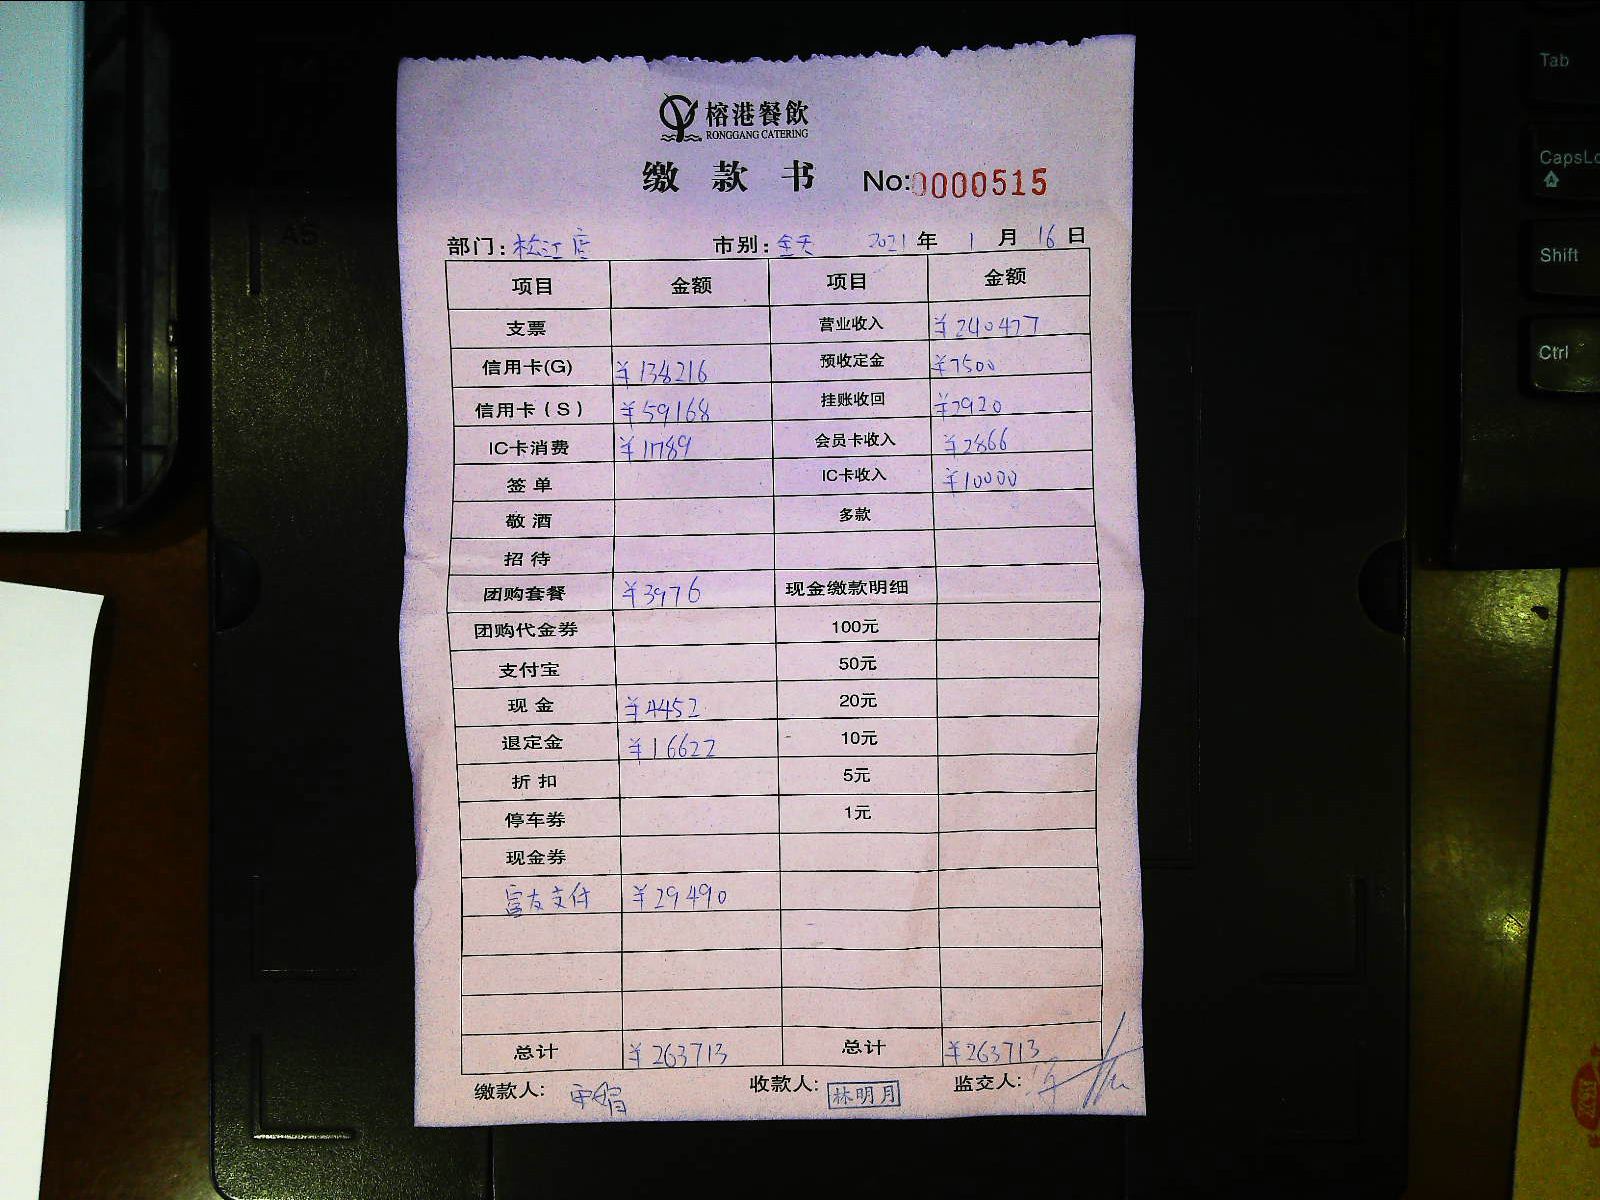 榕港餐飲
RONGGANG CATERING
缴 款 书 No:0000515
部门: 松江店 市别: 全天 2021 年 1 月 16 日
项目 金额 项目 金额
支票 营业收入 ¥240427
信用卡(G) ¥138216 预收定金 ¥7500
信用卡(S) ¥59168 挂账收回 ¥2920
IC卡消费 ¥11789 会员卡收入 ¥2866
签单 IC卡收入 ¥10000
敬酒 多款
招待
团购套餐 ¥3976 现金缴款明细
团购代金券 100元
支付宝 50元
现金 ¥4452 20元
退定金 ¥16622 10元
折扣 5元
停车券 1元
现金券
富友支付 ¥29490
总计 ¥263713 总计 ¥263713
缴款人: 收款人: 林明月 监交人:
Tab
CapsLo
Shift
Ctrl
A5